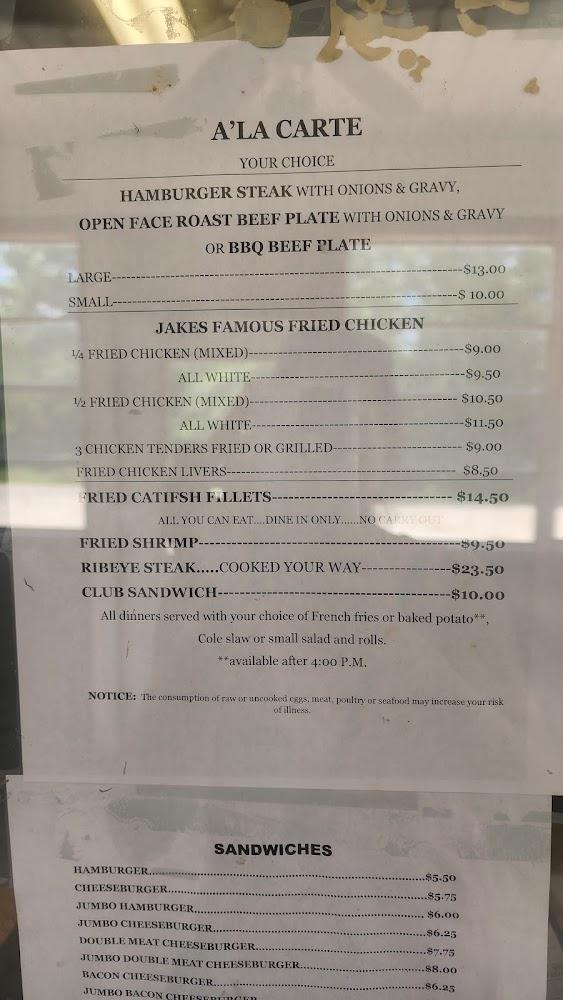 A'LA CARTE
YOUR CHOICE
HAMBURGER STEAK WITH ONIONS & GRAVY,
OPEN FACE ROAST BEEF PLATE WITH ONIONS & GRAVY
OR BBQ BEEF PLATE
LARGE---$13.00
SMALL---$ 10.00
JAKES FAMOUS FRIED CHICKEN
¼ FRIED CHICKEN (MIXED)---$9.00
ALL WHITE---$9.50
½ FRIED CHICKEN (MIXED)--- $10.50
ALL WHITE---$11.50
3 CHICKEN TENDERS FRIED OR GRILLED--- $9.00
FRIED CHICKEN LIVERS--- $8.50
FRIED CATIFSH FILLETS--- $14.50
ALL YOU CAN EAT....DINE IN ONLY......NO CARRY OUT
FRIED SHRIMP---$9.50
RIBEYE STEAK.....COOKED YOUR WAY---$23.50
CLUB SANDWICH---$10.00
All dinners served with your choice of French fries or baked potato**,
Cole slaw or small salad and rolls.
**available after 4:00 P.M.
NOTICE: The consumption of raw or uncooked eggs, meat, poultry or seafood may increase your risk
of illness.
SANDWICHES
HAMBURGER...$5.50
CHEESEBURGER...$5.75
JUMBO HAMBURGER... $6.00
JUMBO CHEESEBURGER...$6.25
DOUBLE MEAT CHEESEBURGER...$7.75
JUMBO DOUBLE MEAT CHEESEBURGER...$8.00
BACON CHEESEBURGER...$6.25
JUMBO BACON CHEESEBURGER